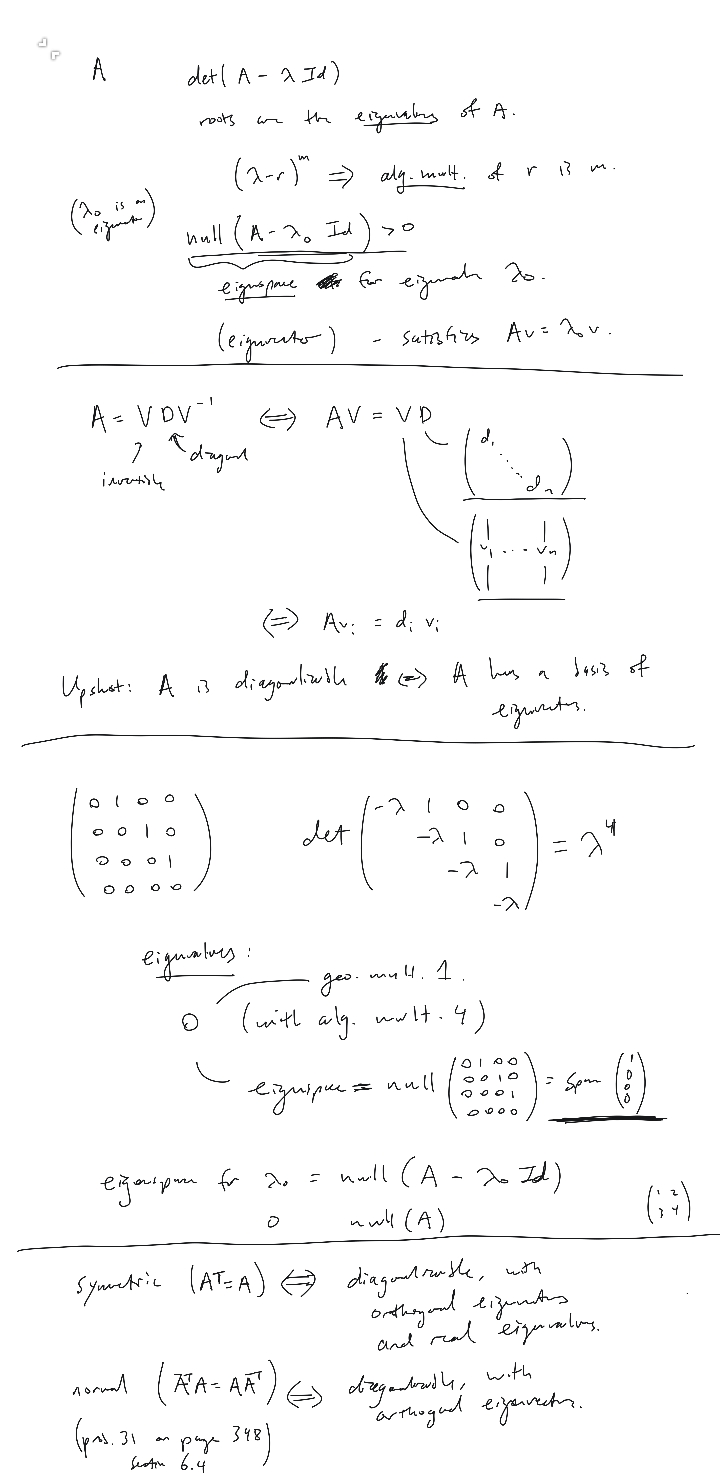 A det(A - λ Id)
roots are the eigenvalues of A.
(λ-r)^m ⇒ alg. mult. of r is m.
(λ₀ is an
eigenvalue)
null(A - λ₀ Id) > 0
eigenspace for eigenvalue λ₀.
(eigenvector) - satisfies Av = λ₀v.
A = VDV⁻¹ ⇔ AV = VD
invertible diagonal
(d₁ ⋱ dₙ)
(v₁ ... vₙ)
⇔ Avᵢ = dᵢ vᵢ
Upshot: A is diagonalizable ⇔ A has a basis of
eigenvectors.
0 1 0 0
0 0 1 0
0 0 0 1
0 0 0 0
det
-λ 1 0 0
-λ 1 0
-λ 1
-λ
= λ⁴
eigenvalues:
geo. mult. 1.
0 (with alg. mult. 4)
eigenspace = null
0 1 0 0
0 0 1 0
0 0 0 1
0 0 0 0
= span
1
0
0
0
eigenspace for λ₀ = null(A - λ₀ Id)
0 null(A)
1 2
3 4
symmetric (Aᵀ=A) ⇔ diagonalizable, with
orthogonal eigenvectors
and real eigenvalues.
normal (A̅ᵀA = AA̅ᵀ) ⇔ diagonalizable, with
orthogonal eigenvectors.
(prob. 31 on page 348)
section 6.4